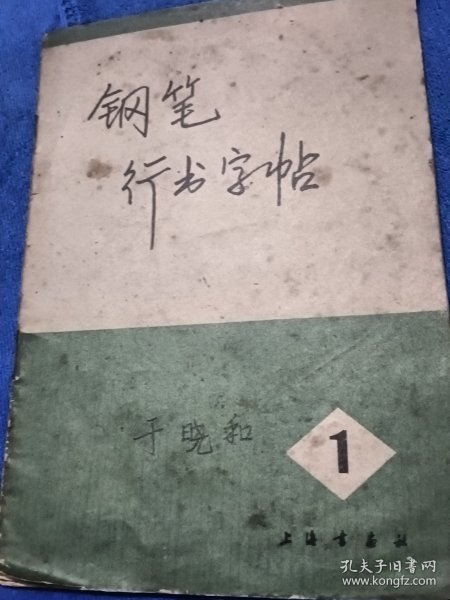 钢笔
行书字帖
于晓和
1
上海书画社
孔夫子旧书网
www.kongfz.com